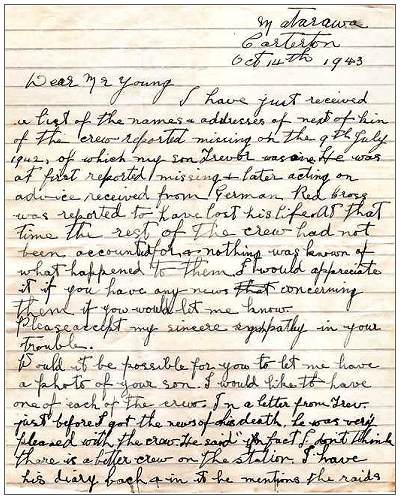 Matarawa
Carterton
Oct 14th 1943
Dear Mr Young
I have just received
a list of the names & addresses of next of kin
of the crew reported missing on the 9th July
1942, of which my son Trevor was one. He was
at first reported missing & later acting on
advice received from German Red Cross
was reported to have lost his life. At that
time the rest of the crew had not
been accounted for, & nothing was known of
what happened to them. I would appreciate
it if you have any news that concerning
them if you would let me know.
Please accept my sincere sympathy in your
trouble.
Would it be possible for you to let me have
a photo of your son. I would like to have
one of each of the crew. In a letter from Trev.
just before I got the news of his death, he was very
pleased with the crew. He said "In fact I don't think
there is a better crew on the station. I have
his diary back & in it he mentions the raids